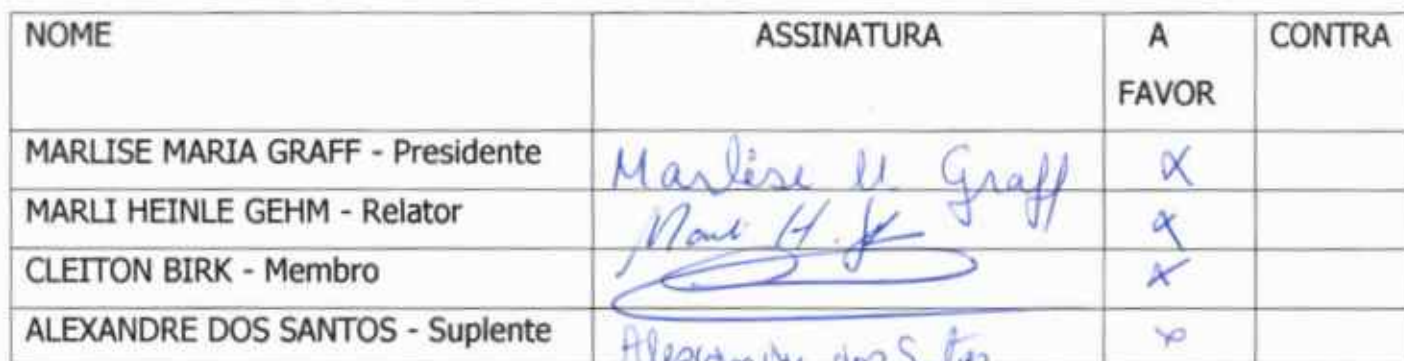 NOME ASSINATURA A FAVOR CONTRA
MARLISE MARIA GRAFF - Presidente Marlise M Graff X
MARLI HEINLE GEHM - Relator Marli H. X
CLEITON BIRK - Membro X
ALEXANDRE DOS SANTOS - Suplente Alexandre dos S X